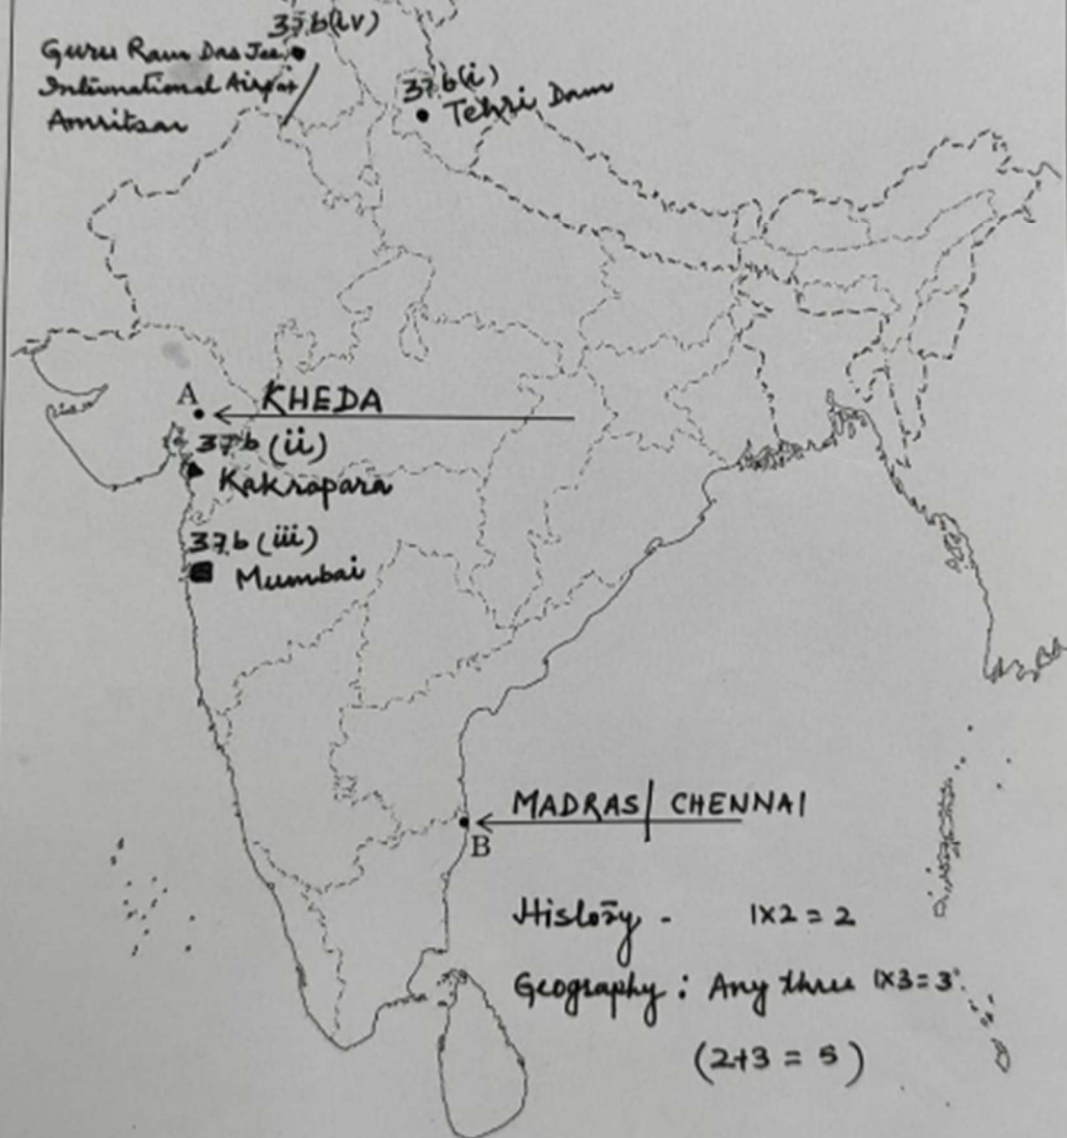 37.b(iv)
Guru Ram Das Jee
International Airport
Amritsar
37.b(i)
Tehri Dam
A
KHEDA
37.b (ii)
Kakrapara
37.b (iii)
Mumbai
MADRAS/ CHENNAI
B
History - 1x2 = 2
Geography : Any three 1x3=3
(2+3 = 5)